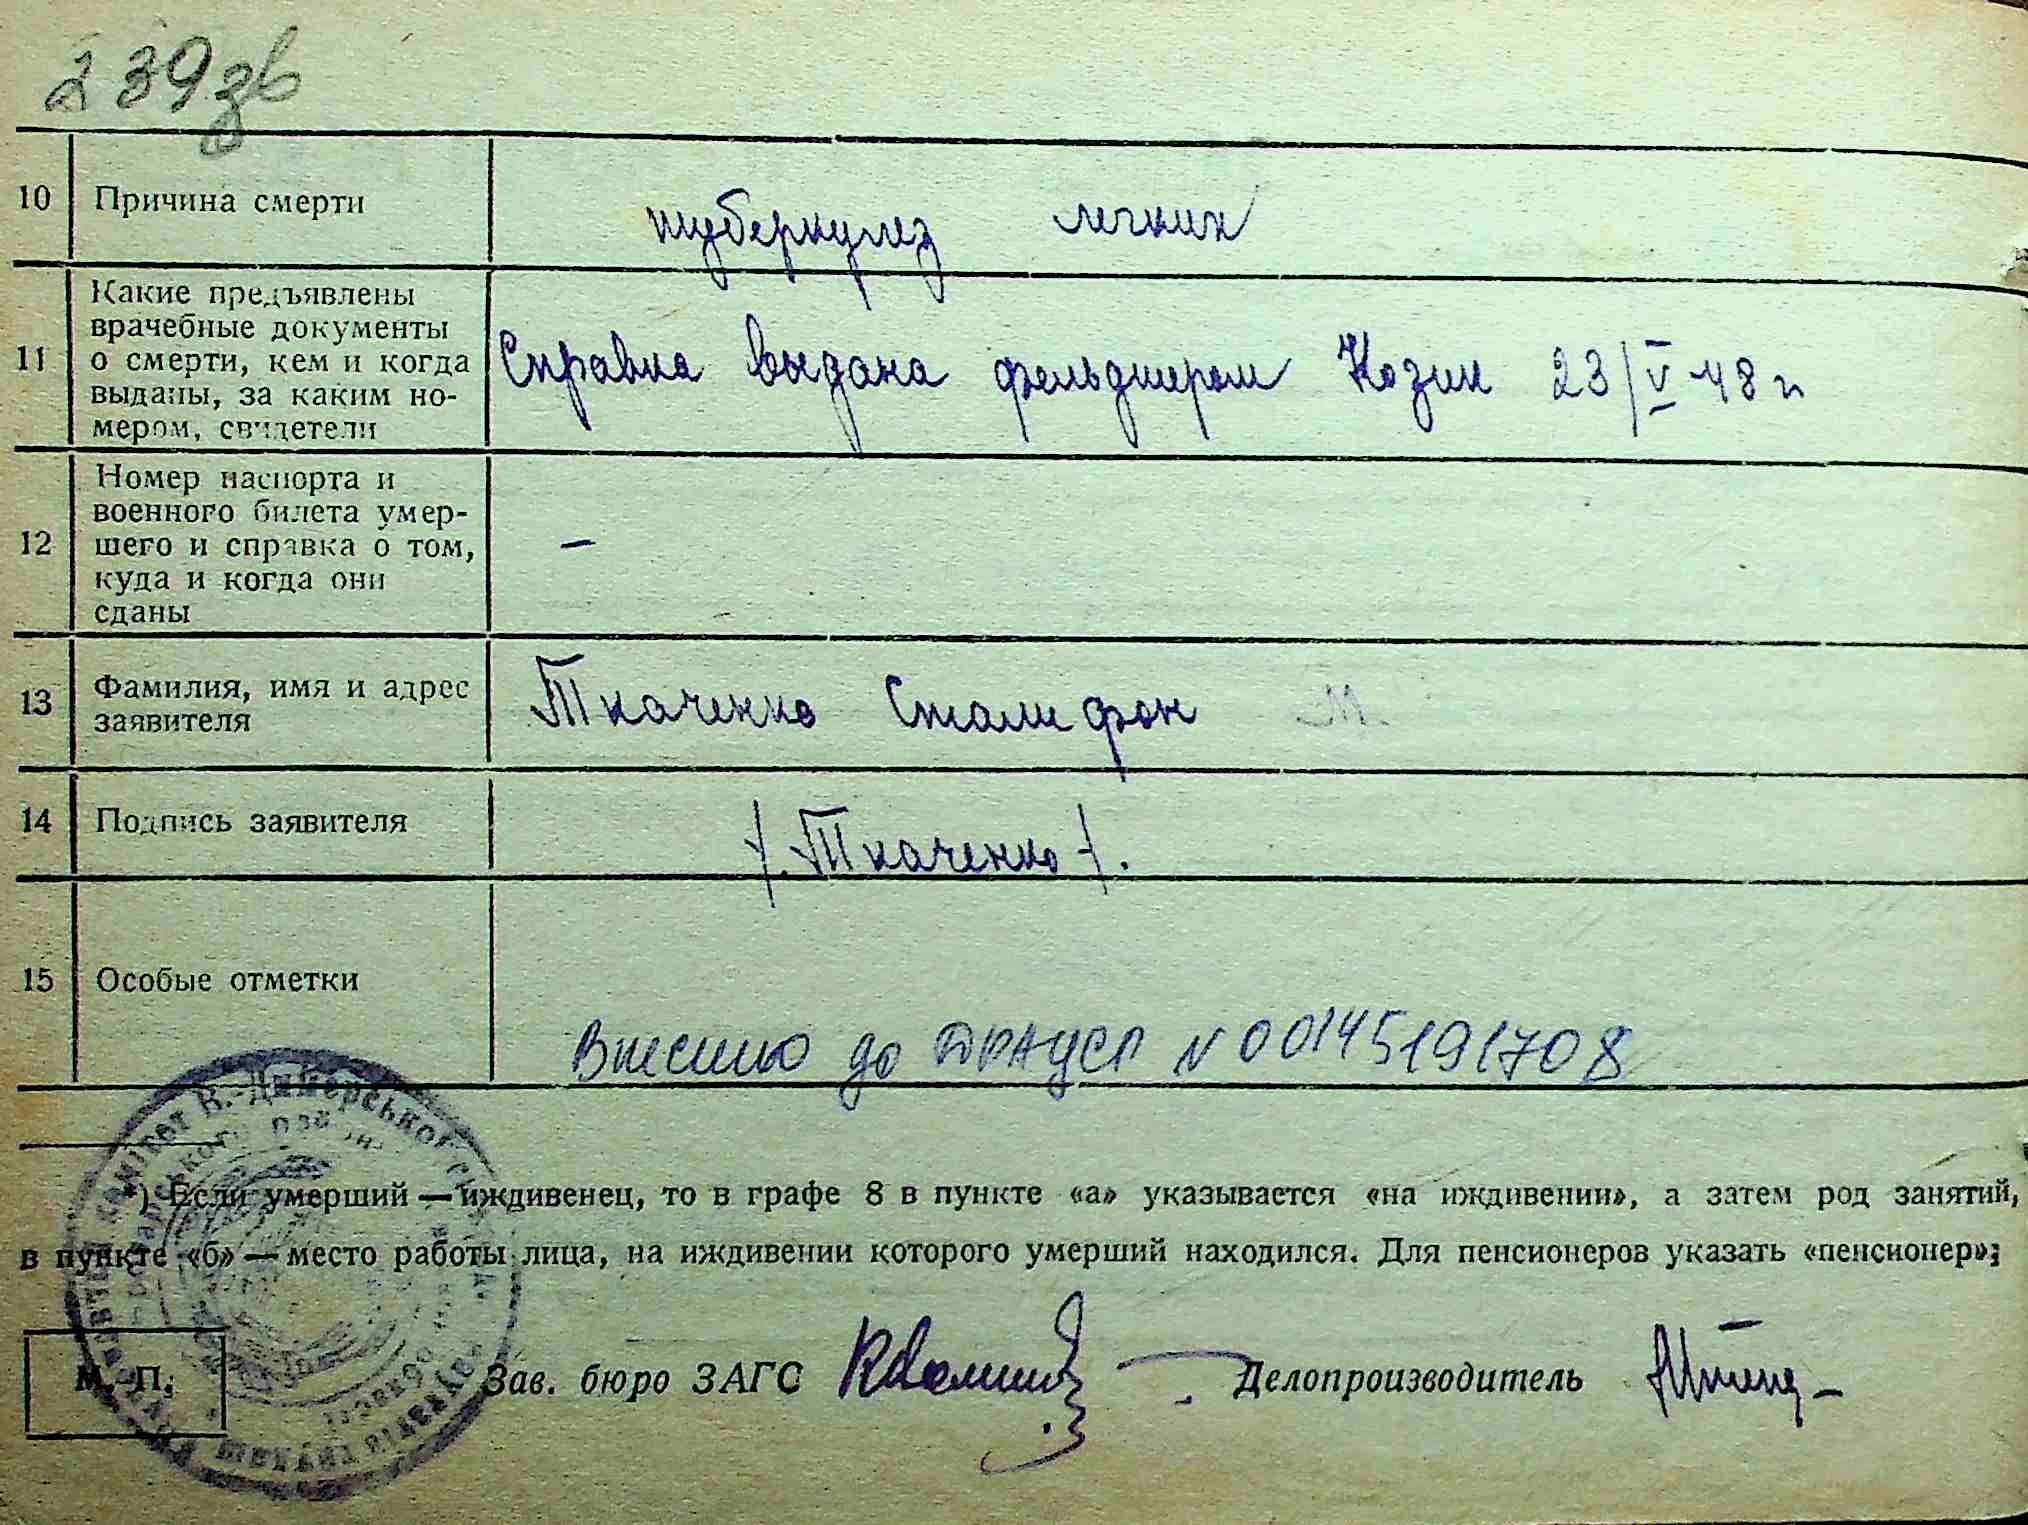 239зв
10 Причина смерти туберкулез легких
11 Какие предъявлены
врачебные документы
о смерти, кем и когда
выданы, за каким но-
мером, свидетели
Справка выдана фельдшером Козик 23/V-48 г
12 Номер паспорта и
военного билета умер-
шего и справка о том,
куда и когда они
сданы
–
13 Фамилия, имя и адрес
заявителя
Ткаченко Сталифон М.
14 Подпись заявителя /.Ткаченко/.
15 Особые отметки
Внесено до ДРАЦСГ N 00145191708
*) Если умерший — иждивенец, то в графе 8 в пункте «а» указывается «на иждивении», а затем род занятий,
в пункте «б» — место работы лица, на иждивении которого умерший находился. Для пенсионеров указать «пенсионер»;
М. П.
Зав. бюро ЗАГС Делопроизводитель